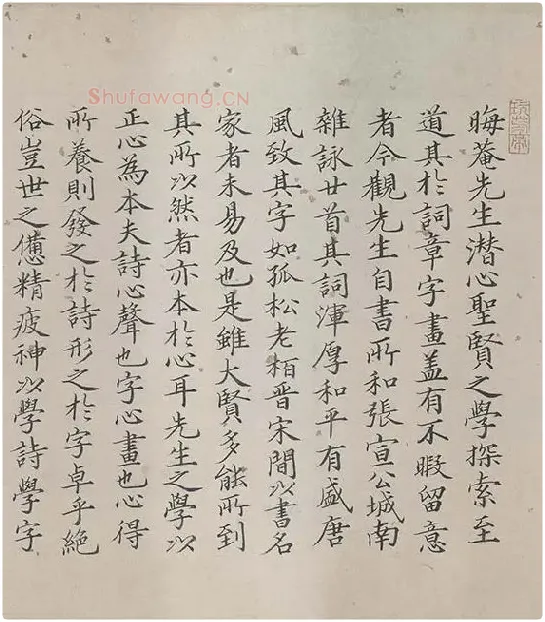 晦菴先生潜心聖賢之學探索至
道其於詞章字畫盖有不暇留意
者今觀先生自書所和張宣公城南
雜詠廿首其詞渾厚和平有盛唐
風致其字如孤松老栢晋宋間以書名
家者未易及也是雖大賢多能所到
其所以然者亦本於心耳先生之學以
正心為本夫詩心聲也字心畫也心得
所養則發之於詩形之於字卓乎絶
俗豈世之憊精疲神以學詩學字
Shufawang.CN